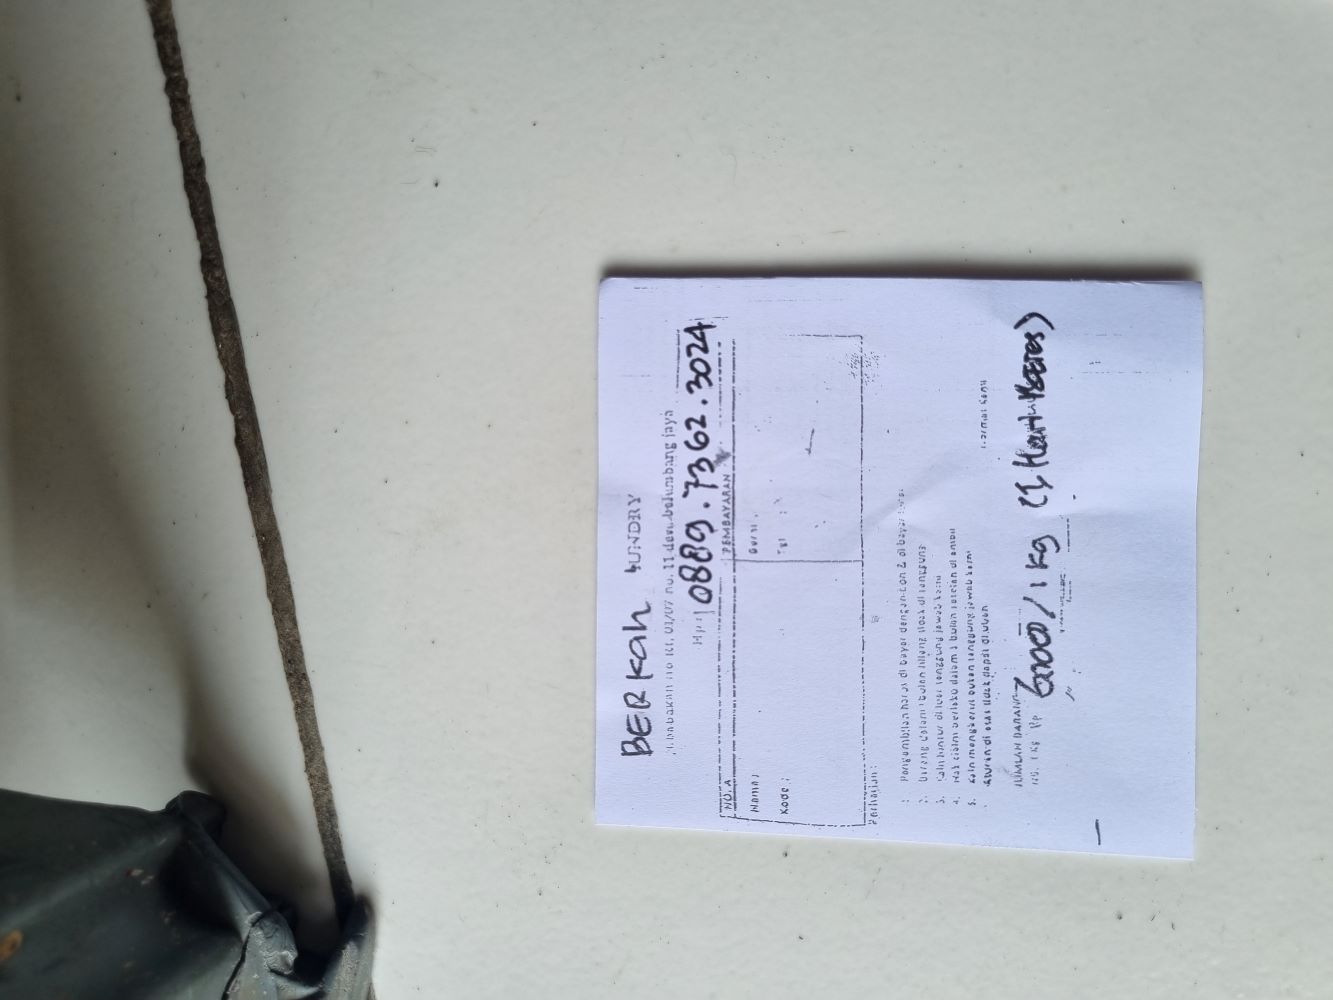 BERKah LUNDRY
no. 11 desa belumbang jaya
Hp : 0889.7362.3024
NO. A
PEMBAYARAN
Nama :
Kode :
Tgl :
Perhatian :
1. Pengambilan harus di bayar dengan bon & di bayar
2. Barang dalam 1 bulan hilang tidak di tanggung
3. Kain luntur di luar tanggung jawab kami
4. Hak claim berlaku dalam 1 bulan setelah di ambil
5. Kain mengkerut bukan tanggung jawab kami
Aturan di atas tidak dapat di ubah
JUMLAH BARANG
Rp 6000 / 1 Kg (1 Hari BERES)